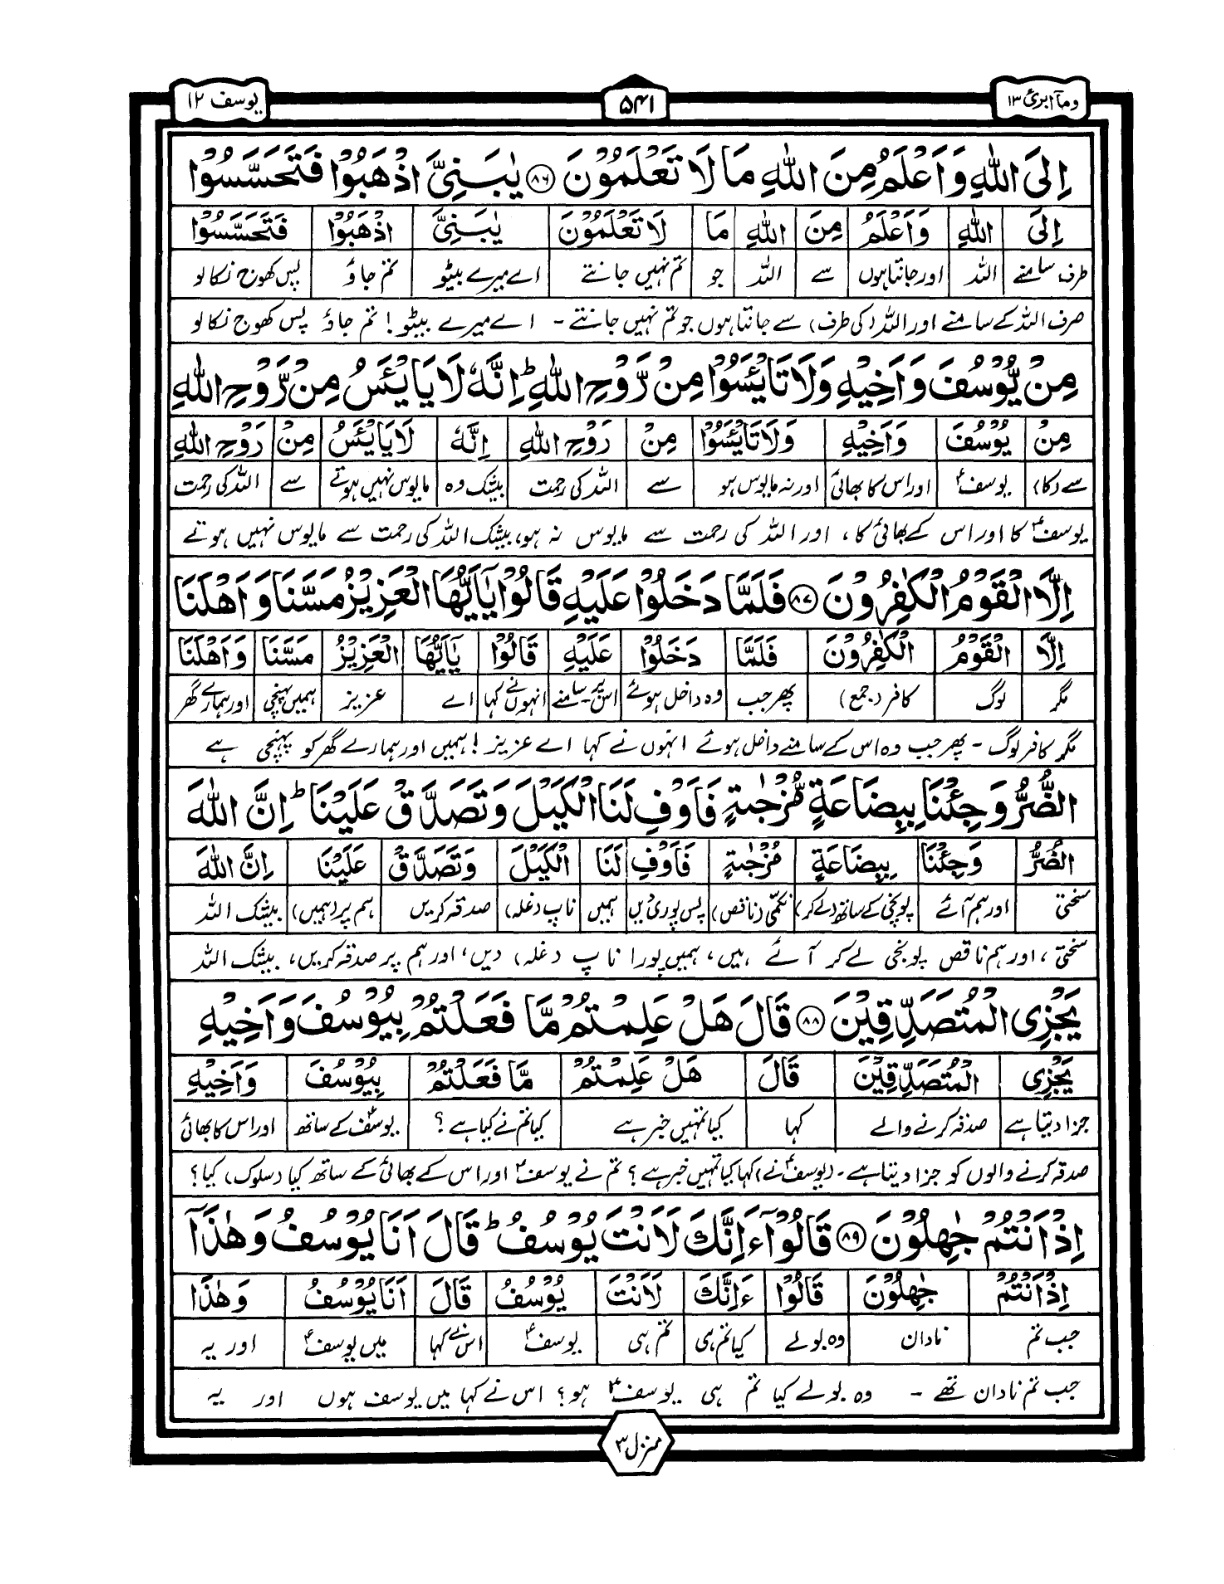 ومآ ابرئ ۱۳
۵۴۱
یوسف ۱۲
اِلَى اللّٰهِ وَاَعْلَمُ مِنَ اللّٰهِ مَا لَا تَعْلَمُوْنَ ﴿۸۶﴾ يٰبَنِيَّ اذْهَبُوْا فَتَحَسَّسُوْا
اِلَى اللّٰهِ وَاَعْلَمُ مِنَ اللّٰهِ مَا لَا تَعْلَمُوْنَ يٰبَنِيَّ اذْهَبُوْا فَتَحَسَّسُوْا
طرف سامنے اللہ اور جانتا ہوں سے اللہ جو تم نہیں جانتے اے میرے بیٹو تم جاؤ پس کھوج نکالو
صرف اللہ کے سامنے اور اللہ (کی طرف) سے جانتا ہوں جو تم نہیں جانتے - اے میرے بیٹو! تم جاؤ پس کھوج نکالو
مِنْ يُّوْسُفَ وَاَخِيْهِ وَلَا تَايْـَٔسُوْا مِنْ رَّوْحِ اللّٰهِ ؕ اِنَّهٗ لَا يَايْـَٔسُ مِنْ رَّوْحِ اللّٰهِ
مِنْ يُوْسُفَ وَاَخِيْهِ وَلَا تَايْـَٔسُوْا مِنْ رَوْحِ اللّٰهِ اِنَّهٗ لَا يَايْـَٔسُ مِنْ رَوْحِ اللّٰهِ
سے (کا) یوسفؑ اور اس کا بھائی اور نہ مایوس ہو سے اللہ کی رحمت بیشک وہ مایوس نہیں ہوتے سے اللہ کی رحمت
یوسفؑ کا اور اس کے بھائی کا، اور اللہ کی رحمت سے مایوس نہ ہو، بیشک اللہ کی رحمت سے مایوس نہیں ہوتے
اِلَّا الْقَوْمُ الْكٰفِرُوْنَ ﴿۸۷﴾ فَلَمَّا دَخَلُوْا عَلَيْهِ قَالُوْا يٰۤاَيُّهَا الْعَزِيْزُ مَسَّنَا وَاَهْلَنَا
اِلَّا الْقَوْمُ الْكٰفِرُوْنَ فَلَمَّا دَخَلُوْا عَلَيْهِ قَالُوْا يٰۤاَيُّهَا الْعَزِيْزُ مَسَّنَا وَاَهْلَنَا
مگر لوگ کافر (جمع) پھر جب وہ داخل ہوئے اس پر - سامنے انہوں نے کہا اے عزیز ہمیں پہنچی اور ہمارے گھر
مگر کافر لوگ - پھر جب وہ اس کے سامنے داخل ہوئے انہوں نے کہا اے عزیز! ہمیں اور ہمارے گھر کو پہنچی ہے
الضُّرُّ وَجِئْنَا بِبِضَاعَةٍ مُّزْجٰىةٍ فَاَوْفِ لَنَا الْكَيْلَ وَتَصَدَّقْ عَلَيْنَا ؕ اِنَّ اللّٰهَ
الضُّرُّ وَجِئْنَا بِبِضَاعَةٍ مُزْجٰىةٍ فَاَوْفِ لَنَا الْكَيْلَ وَتَصَدَّقْ عَلَيْنَا اِنَّ اللّٰهَ
سختی اور ہم آئے پونجی کے ساتھ (لے کر) نکمی (ناقص) پس پوری دیں ہمیں ناپ (غلہ) صدقہ کریں ہم پر (ہمیں) بیشک اللہ
سختی، اور ہم ناقص پونجی لے کر آئے ہیں، ہمیں پورا ناپ (غلہ) دیں، اور ہم پر صدقہ کریں، بیشک اللہ
يَجْزِى الْمُتَصَدِّقِيْنَ ﴿۸۸﴾ قَالَ هَلْ عَلِمْتُمْ مَّا فَعَلْتُمْ بِيُوْسُفَ وَاَخِيْهِ
يَجْزِى الْمُتَصَدِّقِيْنَ قَالَ هَلْ عَلِمْتُمْ مَّا فَعَلْتُمْ بِيُوْسُفَ وَاَخِيْهِ
جزا دیتا ہے صدقہ کرنے والے کہا کیا تمہیں خبر ہے کیا تم نے کیا ہے؟ یوسفؑ کے ساتھ اور اس کا بھائی
صدقہ کرنے والوں کو جزا دیتا ہے - (یوسفؑ نے) کہا کیا تمہیں خبر ہے؟ تم نے یوسفؑ اور اس کے بھائی کے ساتھ کیا (سلوک) کیا؟
اِذْ اَنْتُمْ جٰهِلُوْنَ ﴿۸۹﴾ قَالُوْۤا ءَاِنَّكَ لَاَنْتَ يُوْسُفُ ؕ قَالَ اَنَا يُوْسُفُ وَهٰذَاۤ
اِذْ اَنْتُمْ جٰهِلُوْنَ قَالُوْا ءَاِنَّكَ لَاَنْتَ يُوْسُفُ قَالَ اَنَا يُوْسُفُ وَهٰذَا
جب تم نادان وہ بولے کیا تم ہی تم ہی یوسفؑ اس نے کہا میں یوسفؑ اور یہ
جب تم نادان تھے - وہ بولے کیا تم ہی یوسفؑ ہو؟ اس نے کہا میں یوسف ہوں اور یہ
منزل ۳